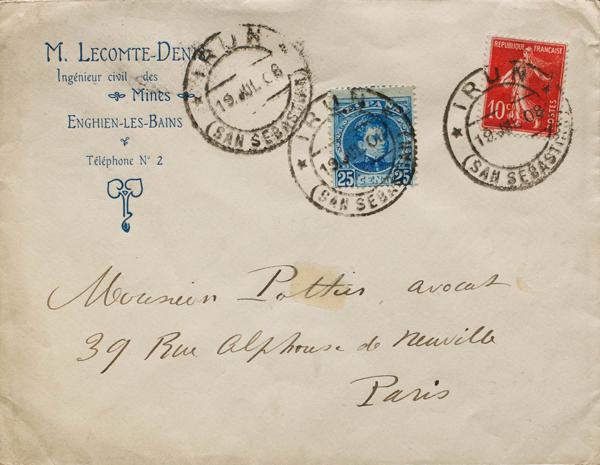 M. Lecomte-Denis
Ingénieur civil des
Mines
Enghien-les-Bains
Téléphone Nº 2
IRUN
19 JUL 08
(SAN SEBASTIAN)
IRUN
ESPAÑA
19 08
25 CENT 25
(SAN SEBASTIAN)
REPUBLIQUE FRANÇAISE
10c
POSTES
IRUN
19 08
(SAN SEBASTIAN)
Monsieur Pottier, avocat
39 Rue Alphonse de Neuville
Paris